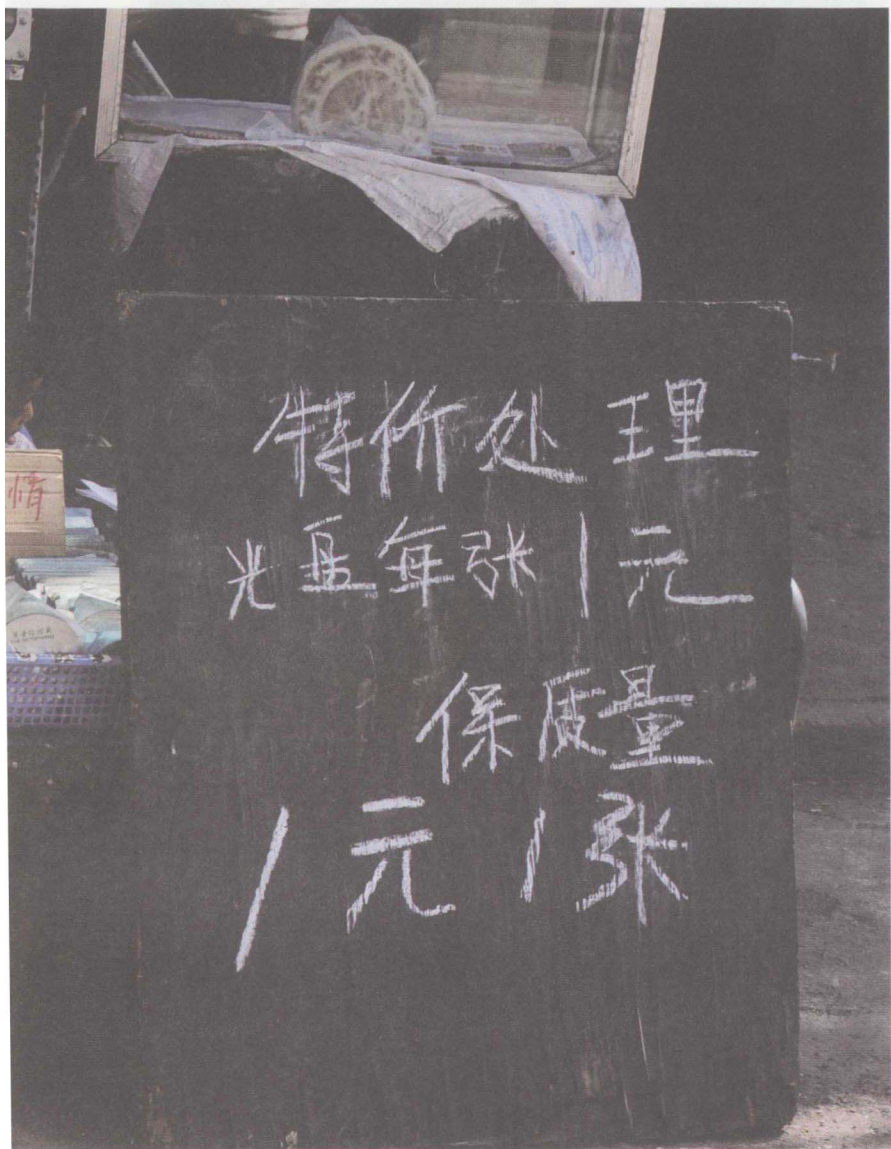 特价处理
光盘每张1元
保质量
1元1张
情